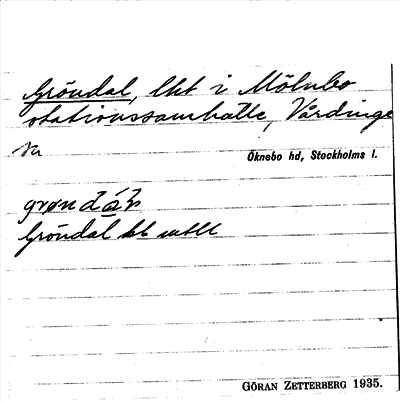 Gröndal, lht i Mölnbo
stationssamhälle, Vårdinge
sn Öknebo hd, Stockholms l.
Gröndal
GÖRAN ZETTERBERG 1935.